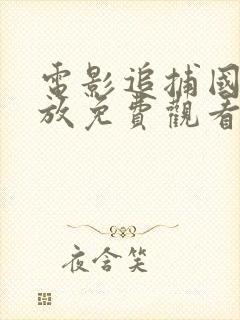 電影追捕國
放免費觀看
夜含笑